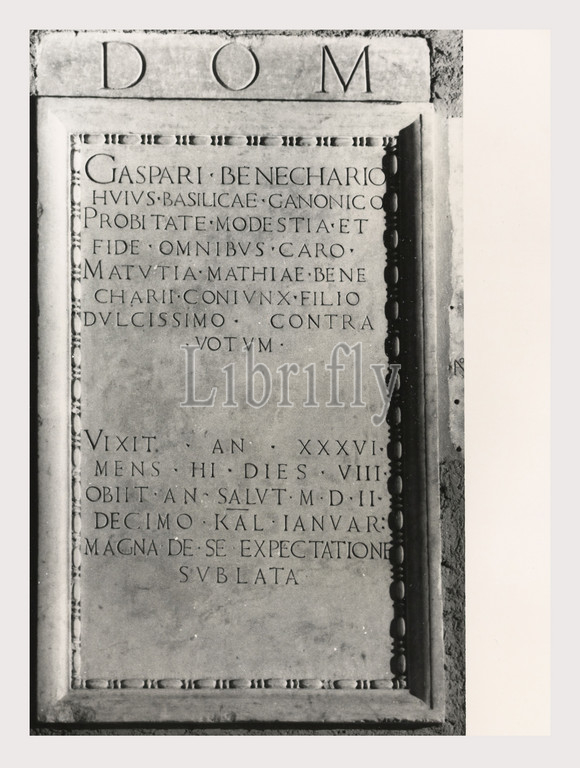 D O M
GASPARI · BENECHARIO
HVIVS · BASILICAE · GANONICO
PROBITATE · MODESTIA · ET
FIDE · OMNIBVS · CARO ·
MATVTIA · MATHIAE · BENE
CHARII · CONIVNX · FILIO
DVLCISSIMO · CONTRA
· VOTVM ·
Librifly
VIXIT · AN · XXXVI ·
MENS · HI · DIES · VIII ·
OBIIT · AN · SALVT · M · D · II ·
DECIMO · KAL · IANVAR :
MAGNA DE · SE · EXPECTATIONE
SVBLATA